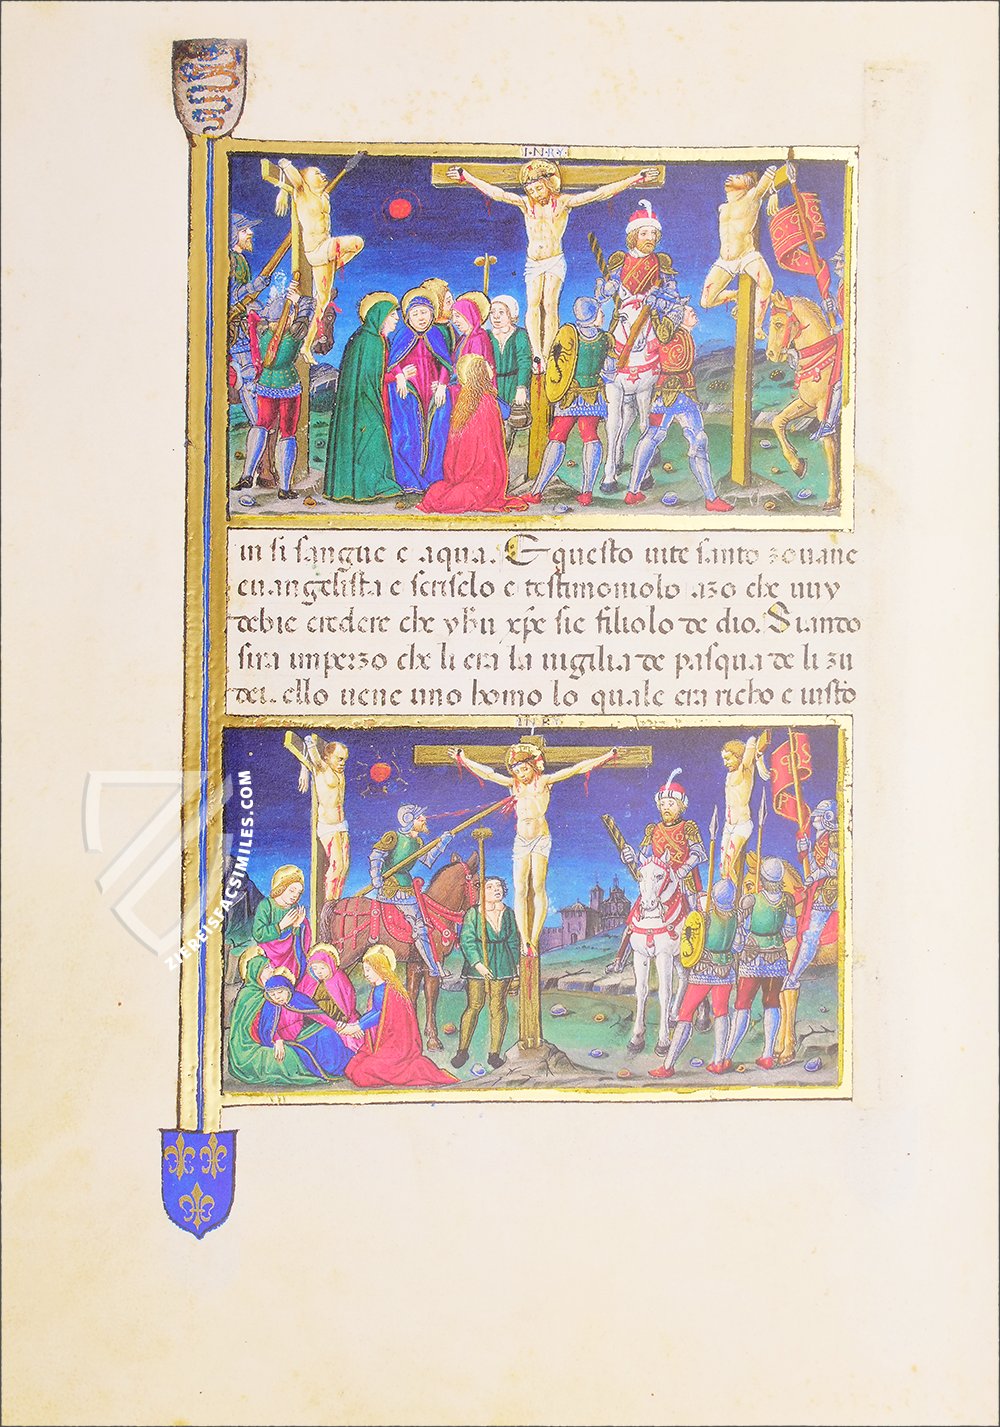 I·N·R·Y·
in si sangue e aqua. E questo vite santo zouane
euangelista e scriselo e testimoniolo azo che uuy
debie credere che yhu xpe sie filiolo de dio. Siando
sira imperzo che li era la uigilia de pasqua de li zu
dei. ello uene uno homo lo quale era richo e uisto
I·N·R·Y·
ZIEREISFACSIMILES.COM